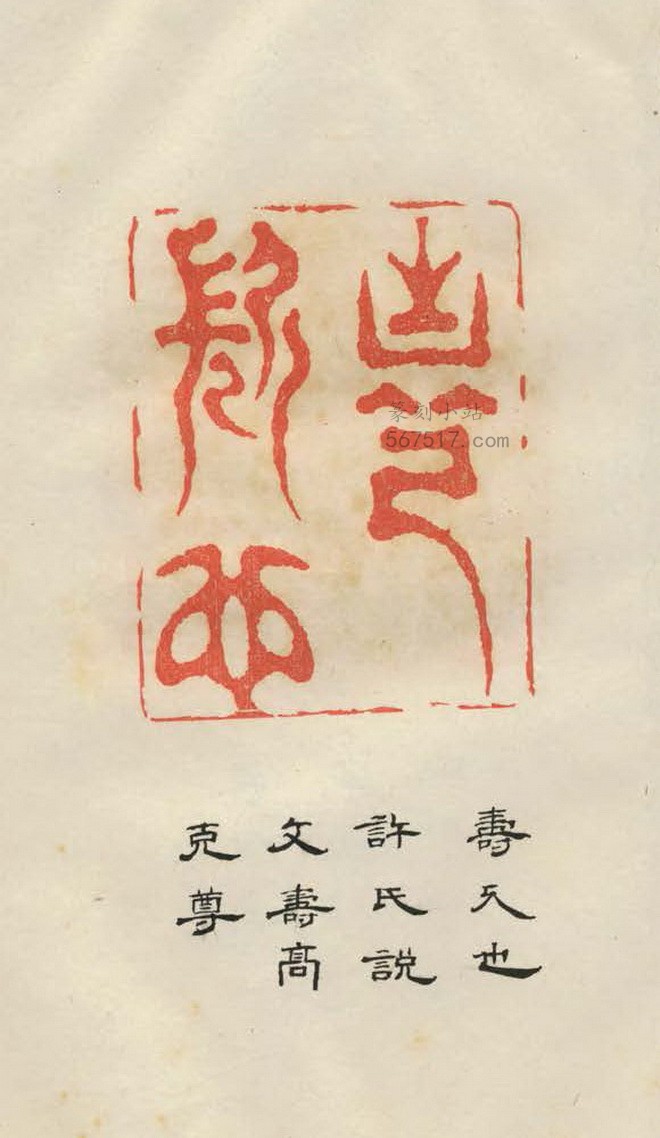 篆刻小站
567517.com
壽久也
許氏說
文壽高
克尊